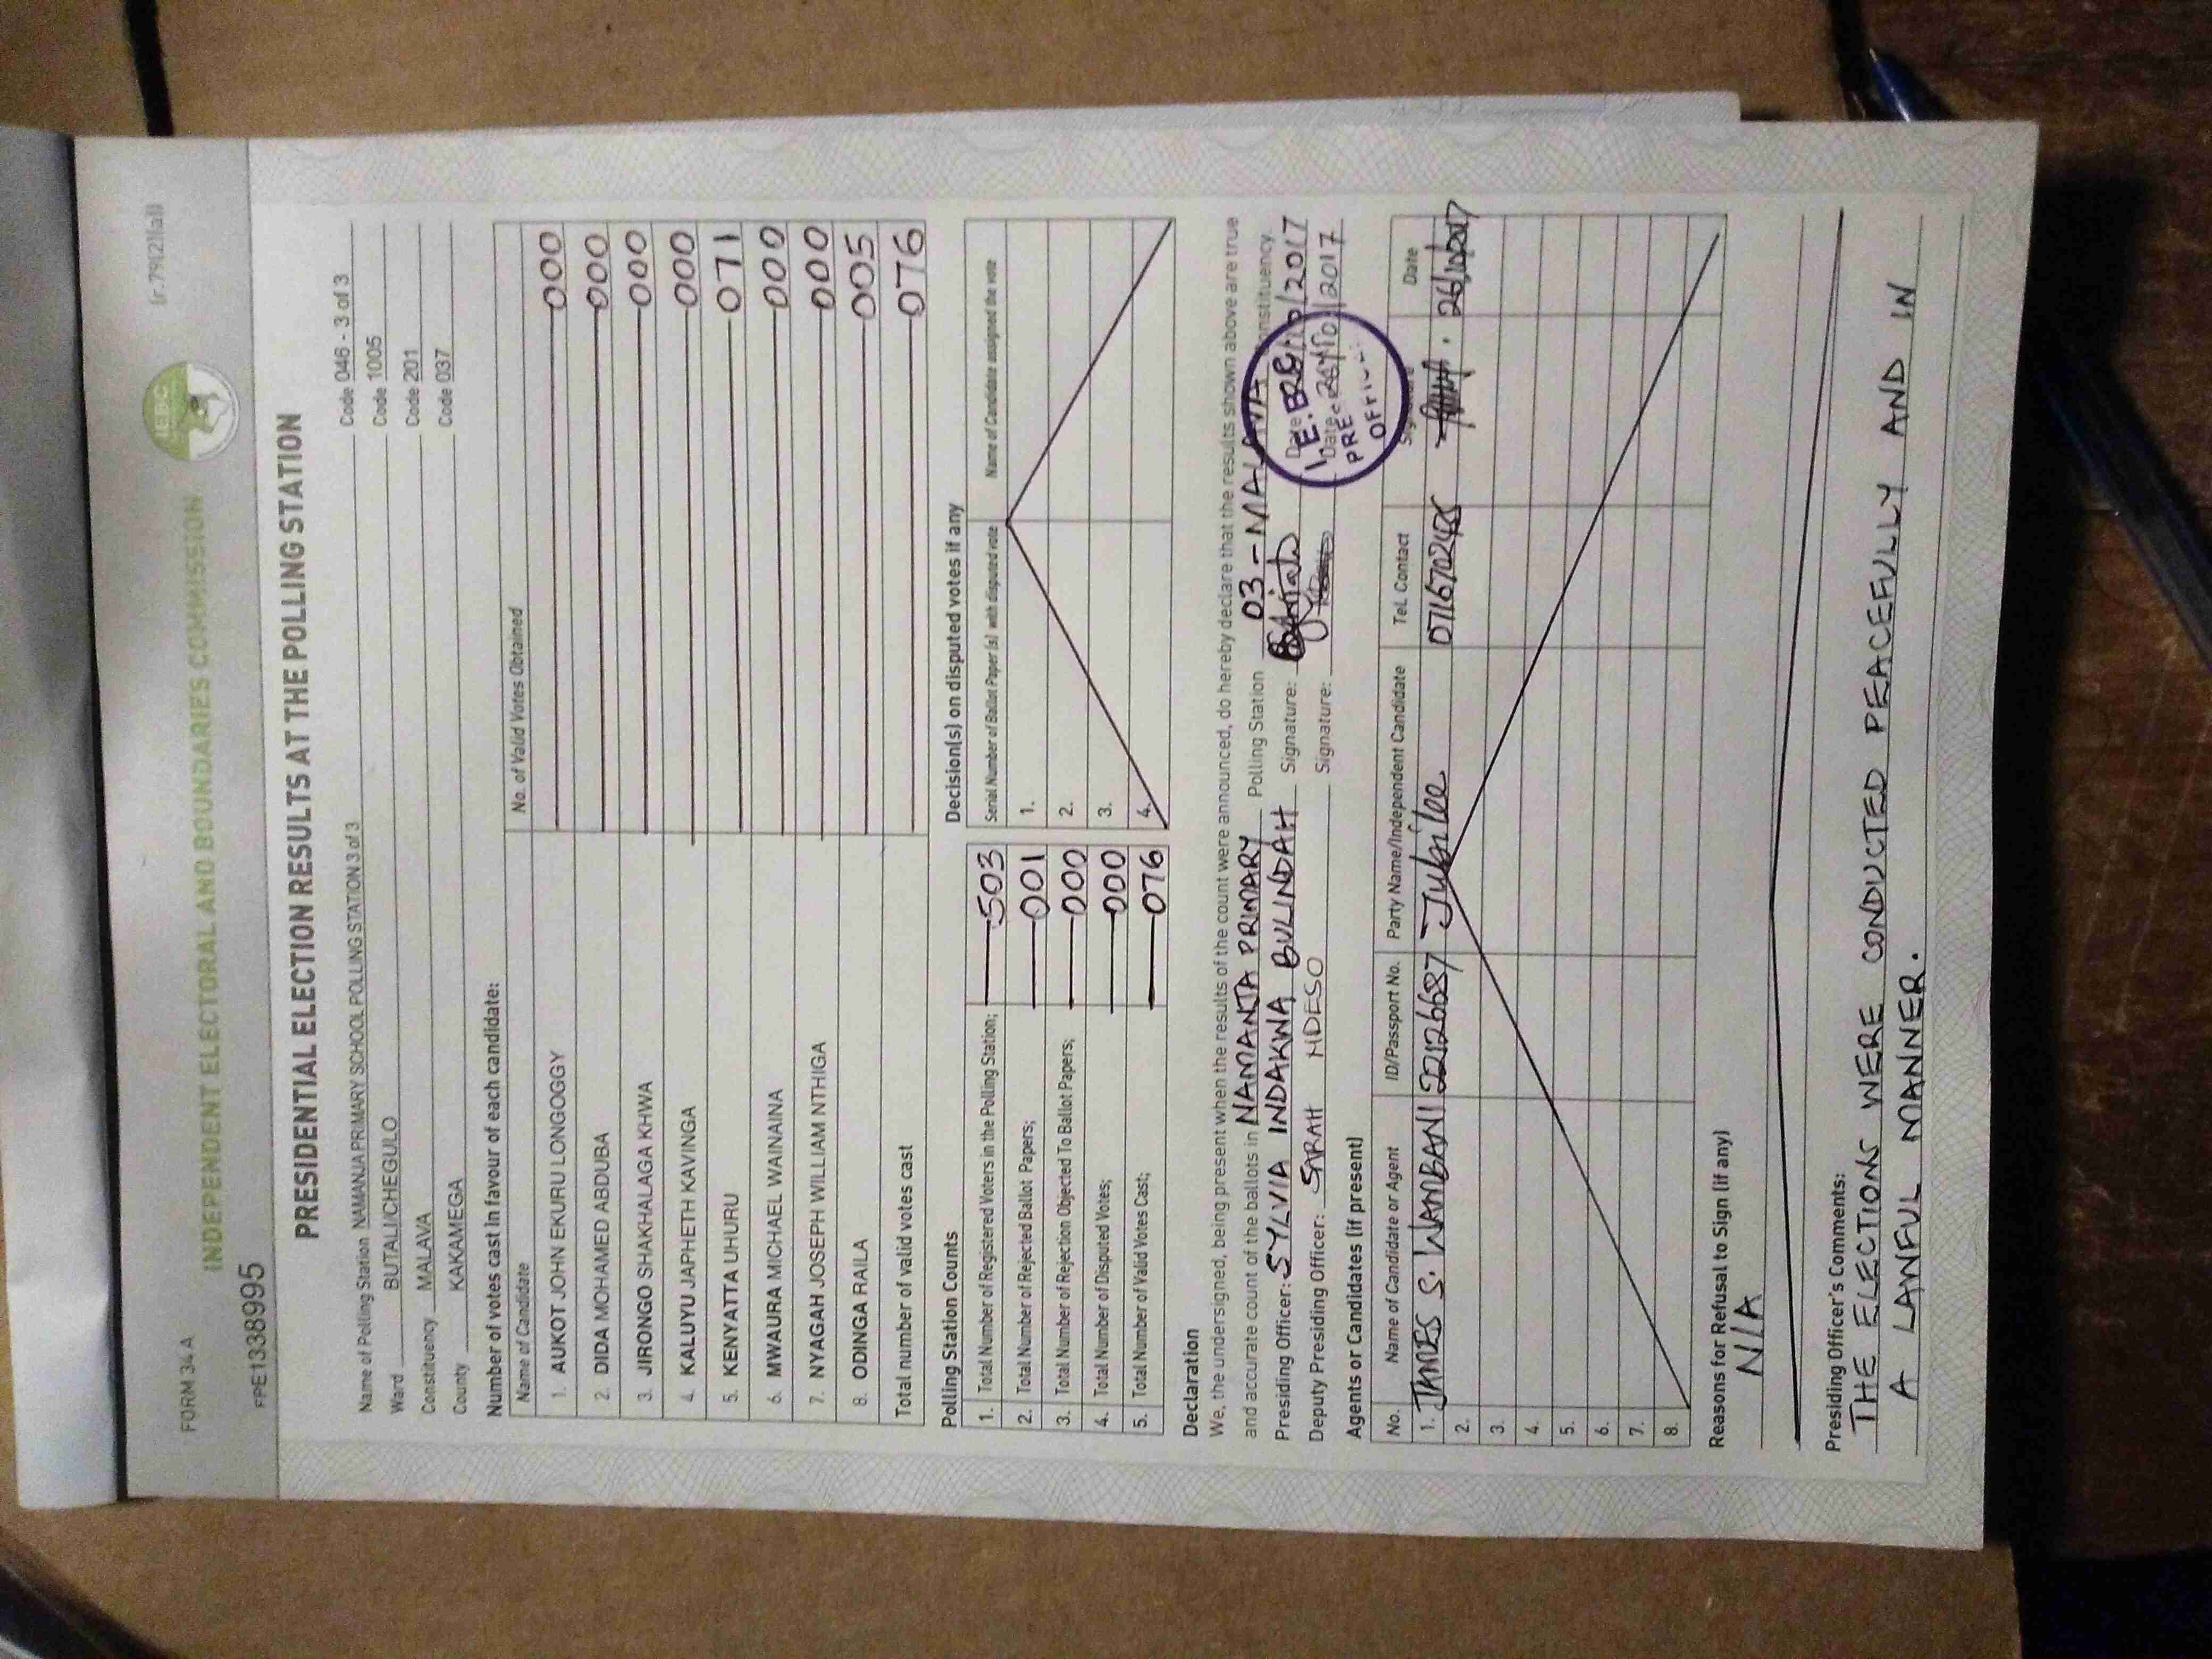 FORM 34 A
(r.79(2)(a))
INDEPENDENT ELECTORAL AND BOUNDARIES COMMISSION
IEBC
FPE1338995
PRESIDENTIAL ELECTION RESULTS AT THE POLLING STATION
Name of Polling Station NAMANJA PRIMARY SCHOOL POLLING STATION 3 of 3 Code 046 - 3 of 3
Ward BUTALI/CHEGULO Code 1005
Constituency MALAVA Code 201
County KAKAMEGA Code 037
Number of votes cast in favour of each candidate:
Name of Candidate No. of Valid Votes Obtained
1. AUKOT JOHN EKURU LONGOGGY 000
2. DIDA MOHAMED ABDUBA 000
3. JIRONGO SHAKHALAGA KHWA 000
4. KALUYU JAPHETH KAVINGA 000
5. KENYATTA UHURU 071
6. MWAURA MICHAEL WAINAINA 000
7. NYAGAH JOSEPH WILLIAM NTHIGA 000
8. ODINGA RAILA 005
Total number of valid votes cast 076
Polling Station Counts
1. Total Number of Registered Voters in the Polling Station; 503
2. Total Number of Rejected Ballot Papers; 001
3. Total Number of Rejection Objected To Ballot Papers; 000
4. Total Number of Disputed Votes; 000
5. Total Number of Valid Votes Cast; 076
Decision(s) on disputed votes if any
Serial Number of Ballot Paper (s) with disputed vote Name of Candidate assigned the vote
1.
2.
3.
4.
Declaration
We, the undersigned, being present when the results of the count were announced, do hereby declare that the results shown above are true
and accurate count of the ballots in NAMANJA PRIMARY Polling Station 03 - MALAVA Constituency.
Presiding Officer: SYLVIA INDAKWA BULINDAH Signature: Date /2017
Deputy Presiding Officer: SARAH NDESO Signature: Date 2017
Agents or Candidates (if present)
No. Name of Candidate or Agent ID/Passport No. Party Name/Independent Candidate Tel. Contact Signature Date
1. JAMES S. WAMBANI 22126687 Jubilee 26/10/2017
2.
3.
4.
5.
6.
7.
8.
Reasons for Refusal to Sign (if any)
N/A
Presiding Officer's Comments:
THE ELECTIONS WERE CONDUCTED PEACEFULLY AND IN
A LAWFUL MANNER.